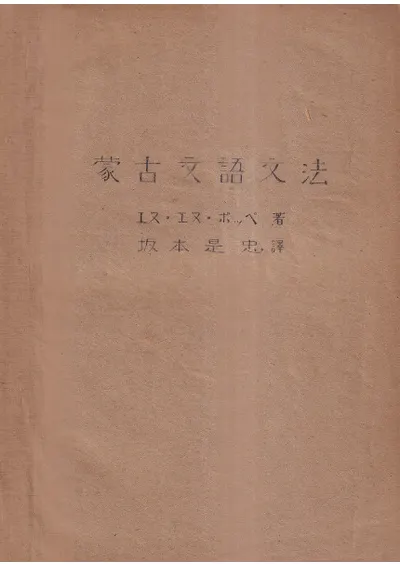 蒙古文語文法
エヌ・エヌ・ポッペ 著
坂本是忠譯